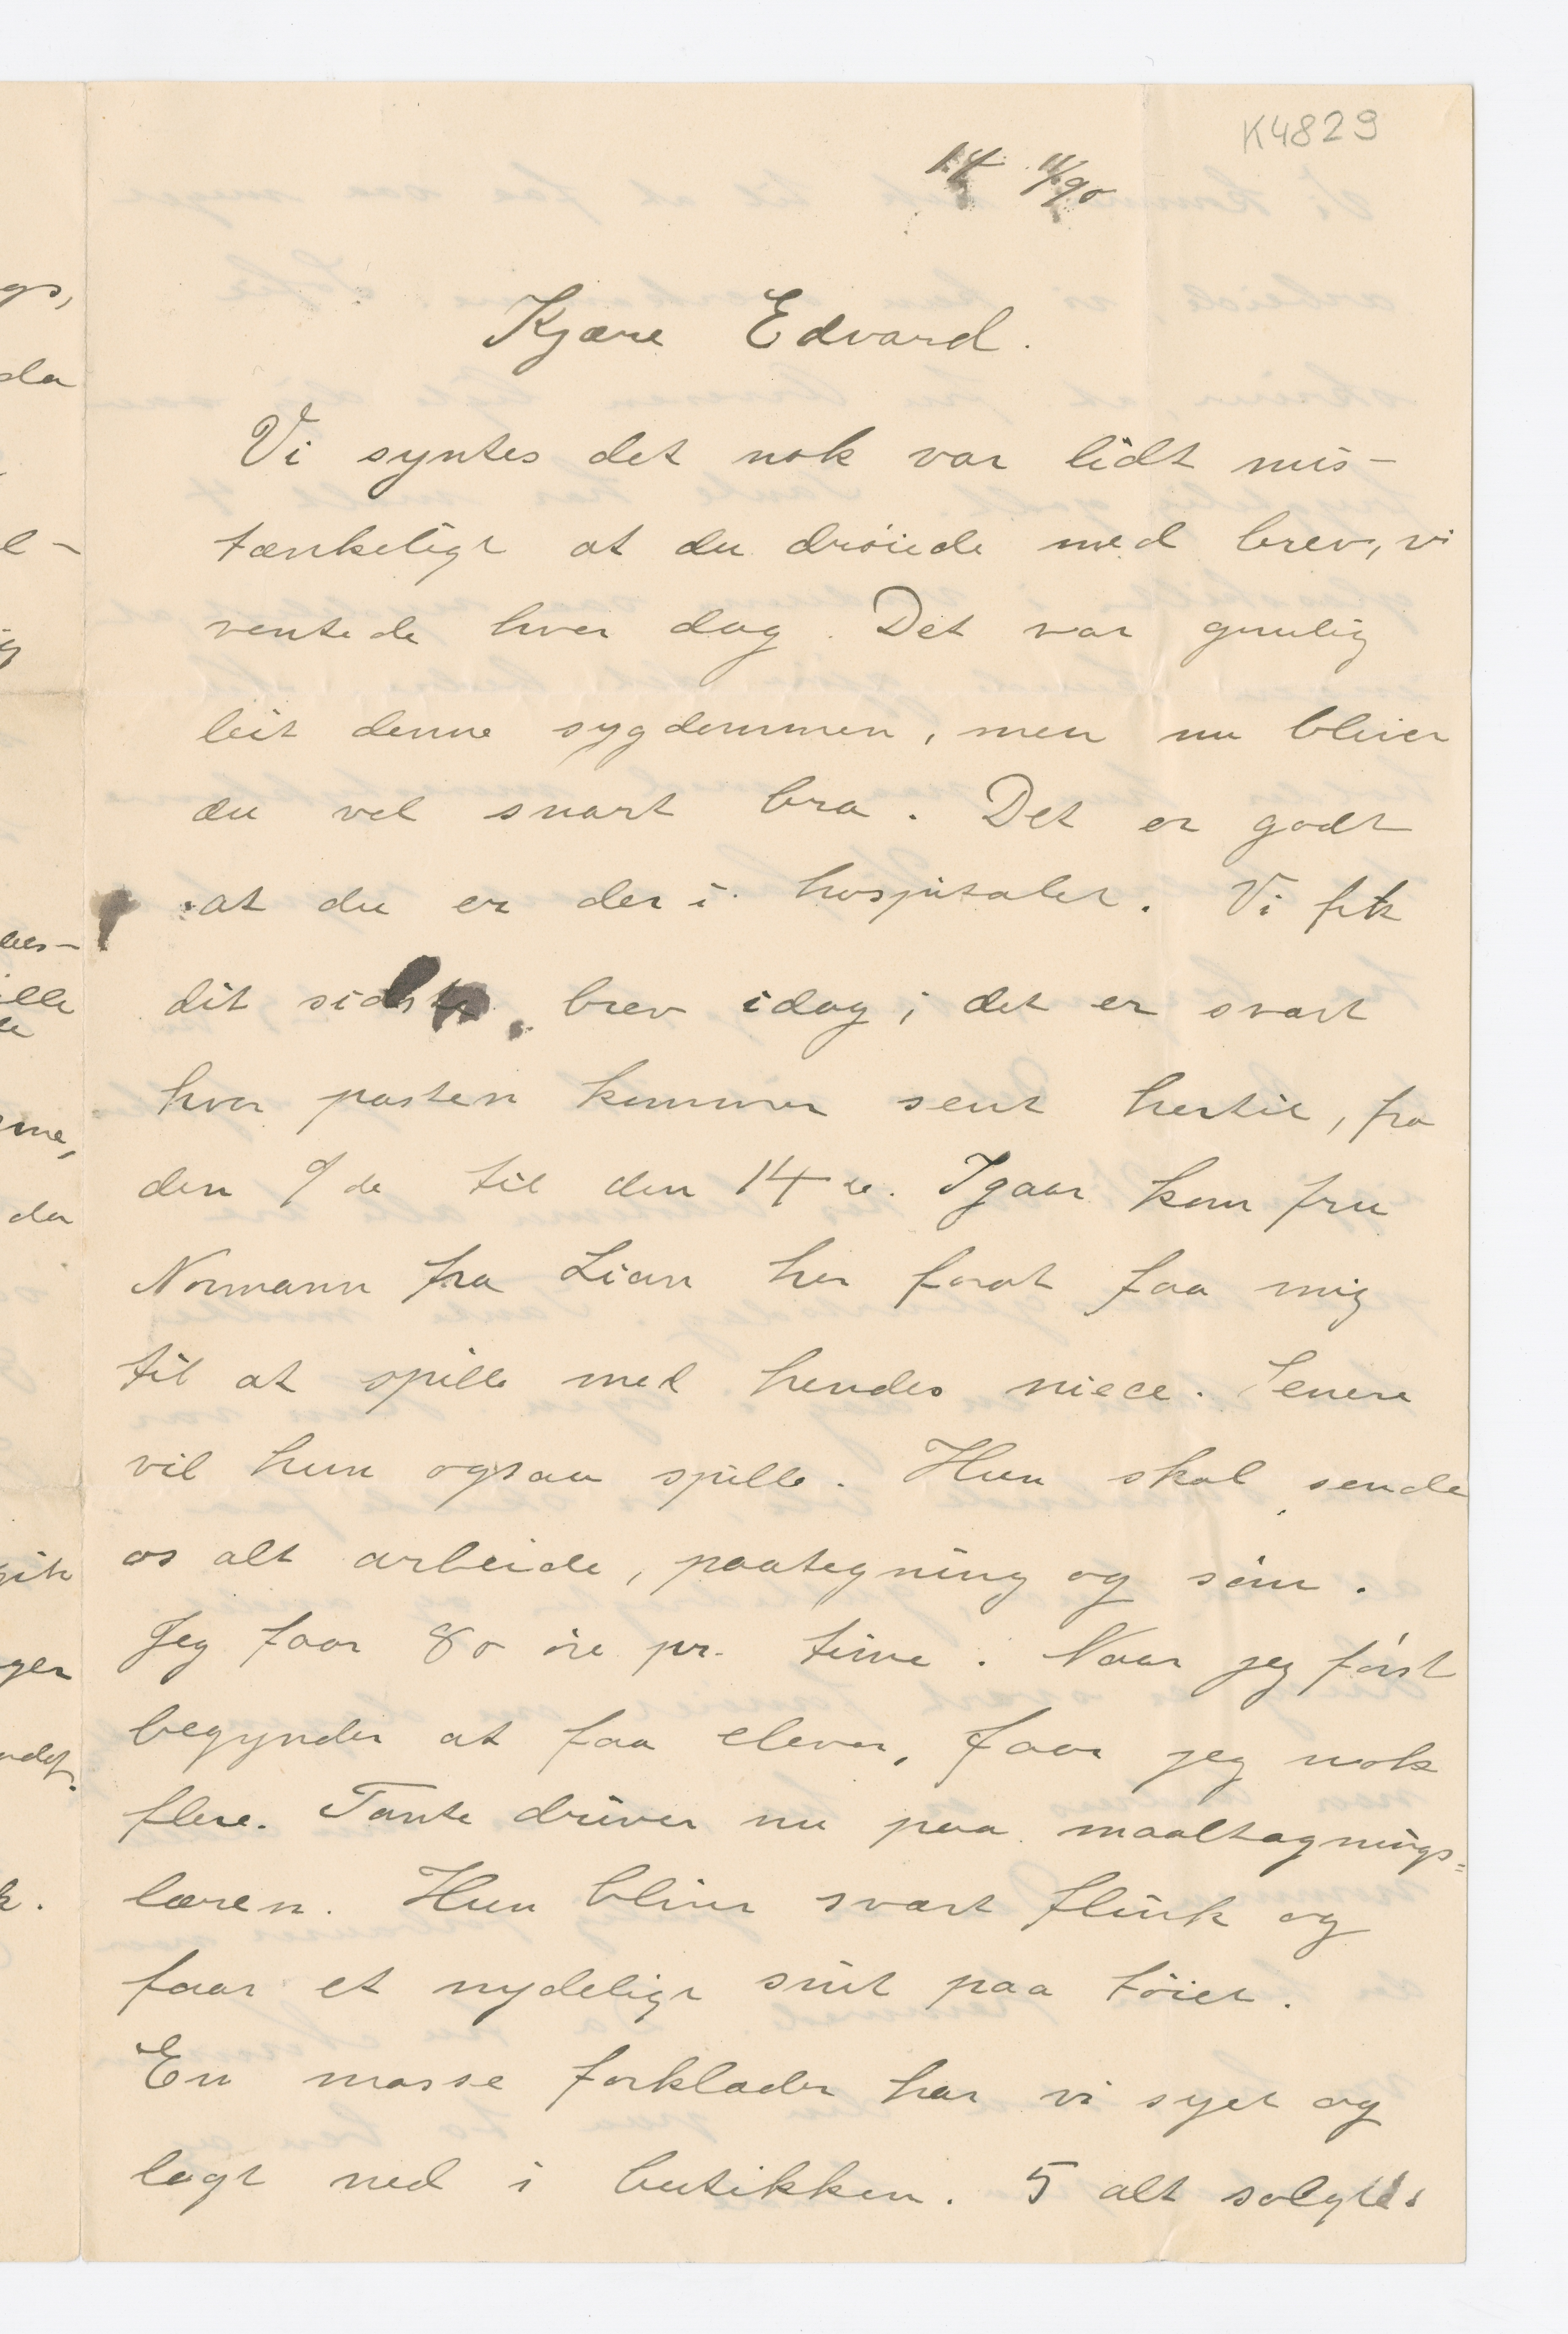 K4829
14 11/90
Kjære Edvard.
Vi syntes det nok var lidt mis-
tænkeligt at du drøiede med brev, vi
ventede hver dag. Det var gruelig
leit denne sygdommen, men nu bliver
du vel snart bra. Det er godt
at du er der i hospitalet. Vi fik
dit sidste brev idag; det er svært
hvor posten kommer sent hertil, fra
den 9de til den 14de. Igaar kom fru
Normann fra Lian her forat faa mig
til at spille med hendes niece. Senere
vil hun ogsaa spille. Hun skal sende
os alt arbeide, paategning og søm.
Jeg faar 80 øre pr. time. Naar jeg først
begynder at faa elever, faar jeg nok
flere. Tante driver nu paa maaltagnings=
læren. Hun bliver svært flink og
faar et nydeligt snit paa tøiet.
En masse forklæder har vi syet og
lagt ned i butikken. 5 alt solgte.
gs,
da
l-
ig
des-
ille
me,
da
gik
ger
k.